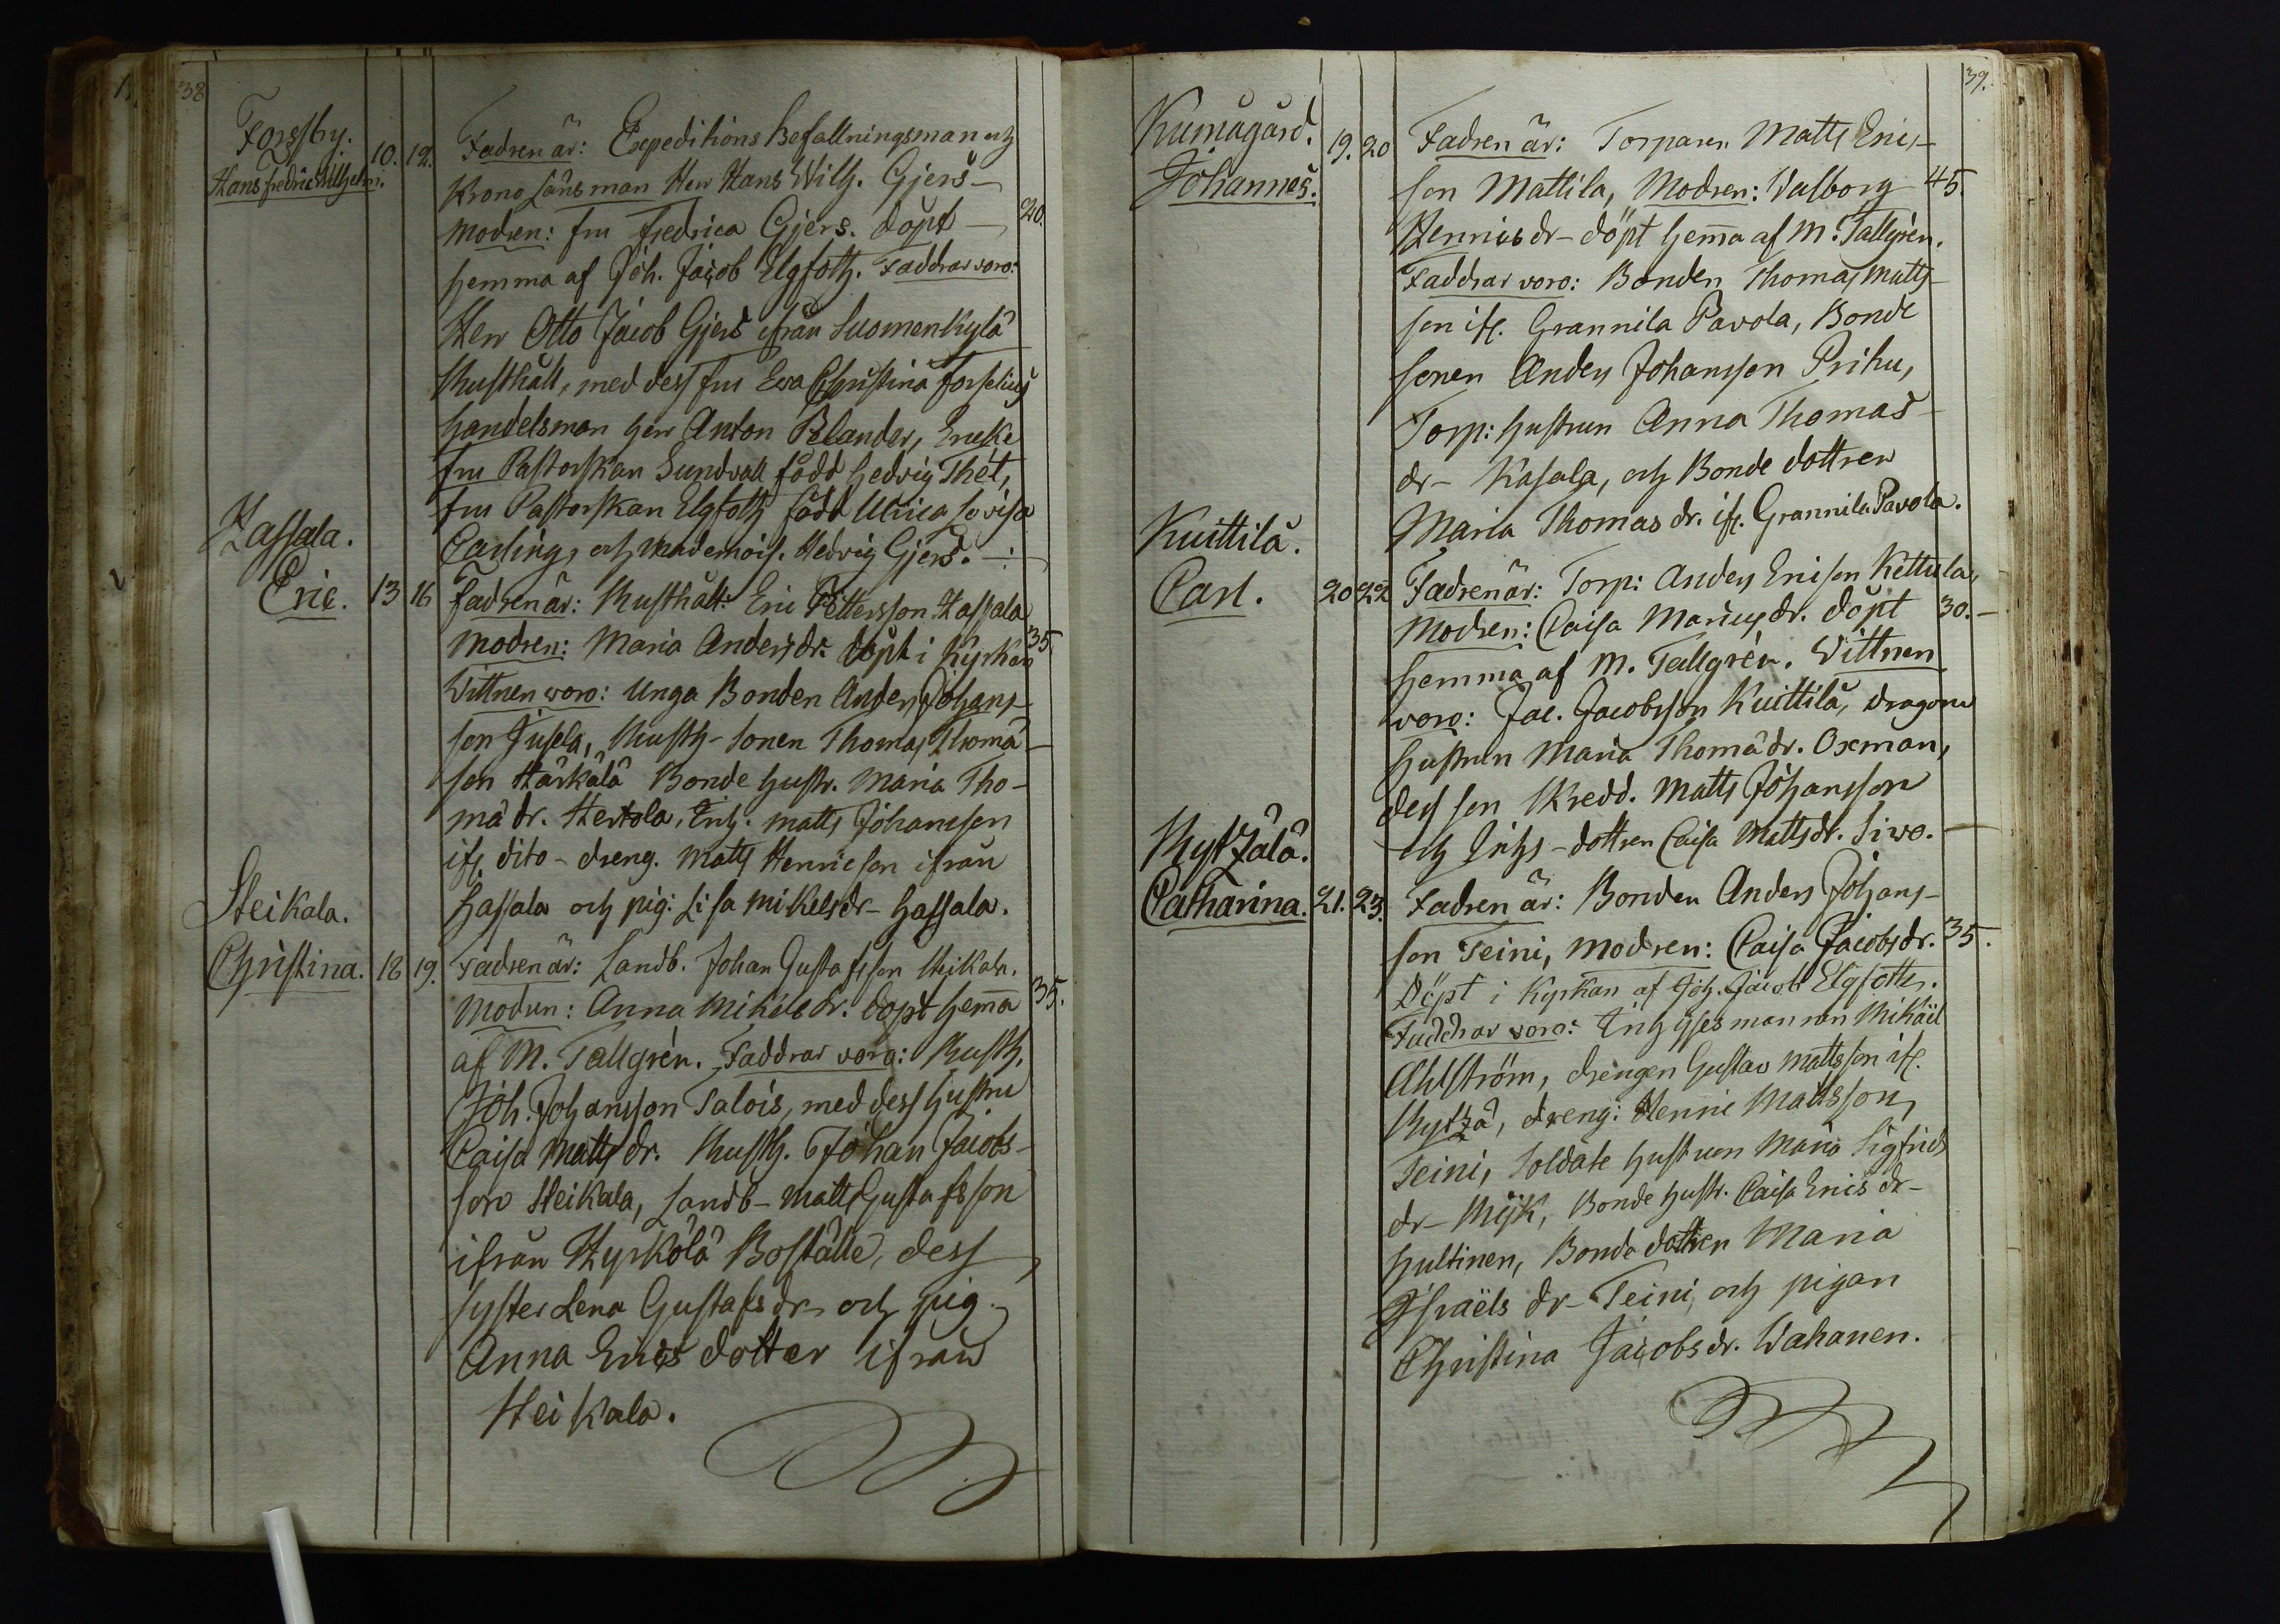 38
Forssby.
Hans fredric Wilhelm.
10. 12.
Fadren är: Expeditions Befallningsman och
Krono Länsman Herr Hans Wilh. Gjers-
modren: fru fredrica Gjers. döpt - 20.
hemma af Joh. Jacob Elgfoth. Faddrar voro:
Herr Otto Jacob Gjers ifrån Suomenkylä
Rusthåll, med dess fru Eva Christina Forselius
handelsman herr Anton Belander, Encke
fru Pastorskan Sundvall född hedvig Thet,
fru Pastorskan Elgfoth född Ulrica Lovisa
Carling, och mademois. Hedvig Gjers. -:
Hassala.
Eric. 13 16
fadren är: Rusthåll: Eric Pettersson Hassala
modren: Maria Andersdr. döpt i Kyrkan 35
Wittnen voro: Unga Bonden Anders Johans-
son Jusela, Rusth-sonen Thomas Thomä-
son Härkälä Bonde hustr. Maria Tho-
mä dr. Hertola, Enk. matts Johansson
ifr. dito - dreng. Matts Henricson ifrån
hassala och pig: Lisa mikelsdr - hassala.
Heikala.
Christina. 18 19.
Fadren är: Landb. Johan Gustafsson Heikala.
modren: Anna Mikelsdr. döpt hemma 35.
af M. Tallgrèn. Faddrar voro: Rusth.
Joh. Johansson Talois, med dess hustru
Caisa Matts dr. Rusth. Johan Jacobs-
son Heikala, Landb - matts Gustafsson
ifrån Hyrkölä Boställe, dess
syster Lena Gustafs dr, och pig.
Anna Erics dotter ifrån
Heikala.
39.
Kumugård.
Johannes.
19. 20
Fadren är: Torparen Matts Eric-
son Mattila, Modren: Valborg 45.
Henricsdr - döpt hemma af M. Tallgrèn.
Faddrar voro: Bonden Thomas Matts-
son ifr. Grannila Pavola, Bonde
sonen Anders Johansson Prihu,
Torp: hustrun Anna Thomas-
dr - Kasala, och Bonde dottren
Maria Thomas dr. ifr. Grannila Pavola.
Kuittilä.
Carl. 20 22
Fadren är: Torp: Anders Ericson Kettula,
Modren: Caisa Mariusdr. döpt 30.-
hemma af M. Tallgrèn. Wittnen
voro: Jac. Jacobsson Kuittilä, dragon
hustrun Maria Thomä dr. Oxman,
dess son Skredd. Matts Johansson
och Inhs - dottren Caisa Mattsdr. Siwo.
Kytzälä.
Catharina. 21. 23.
Fadren är: Bonden Anders Johans-
son Teini, modren: Caisa Jacobsdr. 35.
Döpt i Kyrkan af Joh. Jacob Elgfoth.
Faddrar voro: Inhyses mannen Mikäel
Ahlström, drengen Gustav Mattsson ifr.
Kytzä, dreng: Henric Mattsson,
Teini, Soldate hustrun Maria Sigfrids
dr - Mijk, Bonde hustr. Caisa Erics dr -
Hultinen, Bonde dottren Maria
Israëls dr - Teini, och pigan
Christina Jacobsdr. Wahanen.